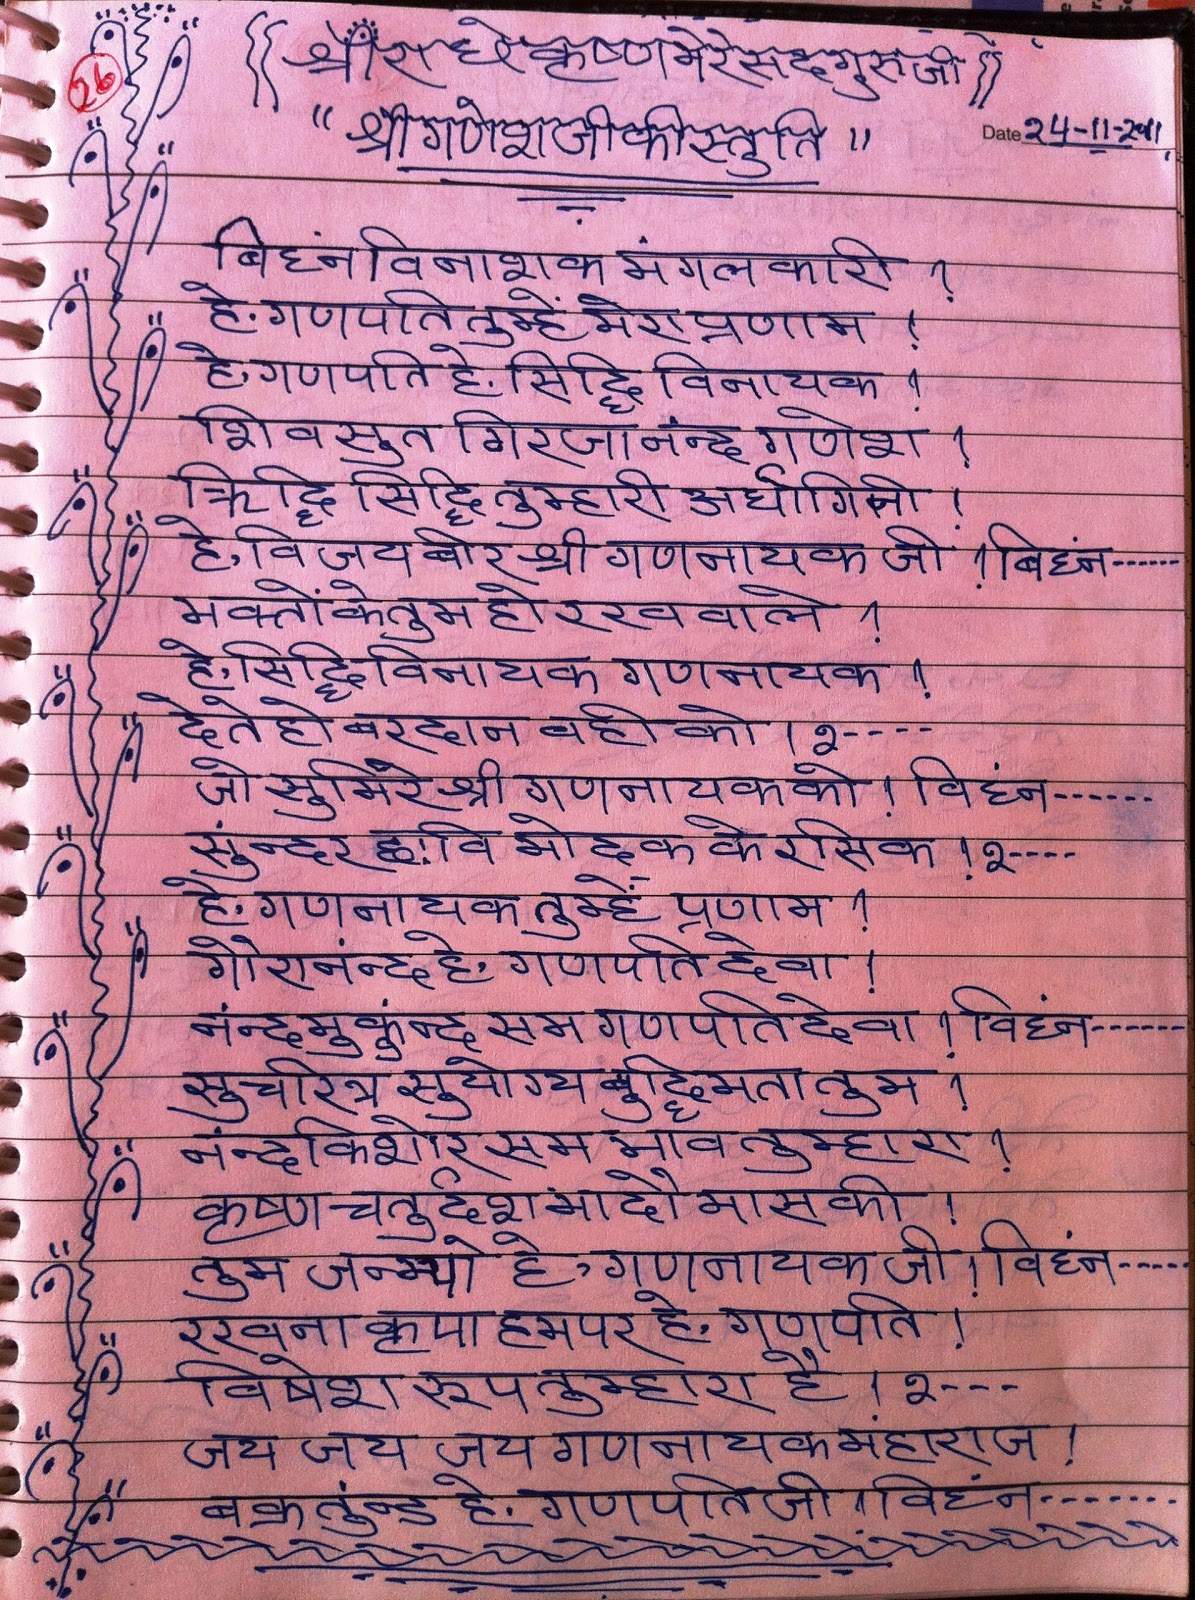 26
{{ श्री राधेकृष्ण मेरे सदगुरुजी }}
" श्री गणेश जी की स्तुति "
Date 24-11-2011
बिघंन विनाशक मंगलकारी ।
हे. गणपति तुम्हें मेरा प्रणाम ।
हे, गणपति हे. सिद्धि विनायक ।
शिव सुत गिरजा नंन्द गणेश ।
ऋिद्धि सिद्धि तुम्हारी अर्धागिनी ।
हे, विजय बीर श्री गणनायक जी । बिघंन------
भक्तों के तुम हो रखवाले ।
हे, सिद्धि विनायक गणनायक ।
देते हो बरदान वही को । २----
जो सुमिरे श्री गणनायक को । विघंन------
सुंन्दर छ:वि मोदक के रसिक । २----
हे. गणनायक तुम्हें प्रणाम ।
गौरा नंन्द हे, गणपति देवा ।
नंन्द मुकुंन्द सम गणपति देवा । विघंन------
सुचरित्र सुयोग्य बुद्धिमता तुम ।
नंन्द किशोर सम भाव तुम्हारा ।
कृष्ण चतुर्दश भादो मास की ।
तुम जन्म्यो हे, गणनायक जी । विघंन-----
रखना कृपा हम पर हे. गणपति ।
विषेश रूप तुम्हारा है । २---
जय जय जय गणनायक मंहाराज ।
बक्रतुंन्ड हे. गणपति जी । विघंन-------